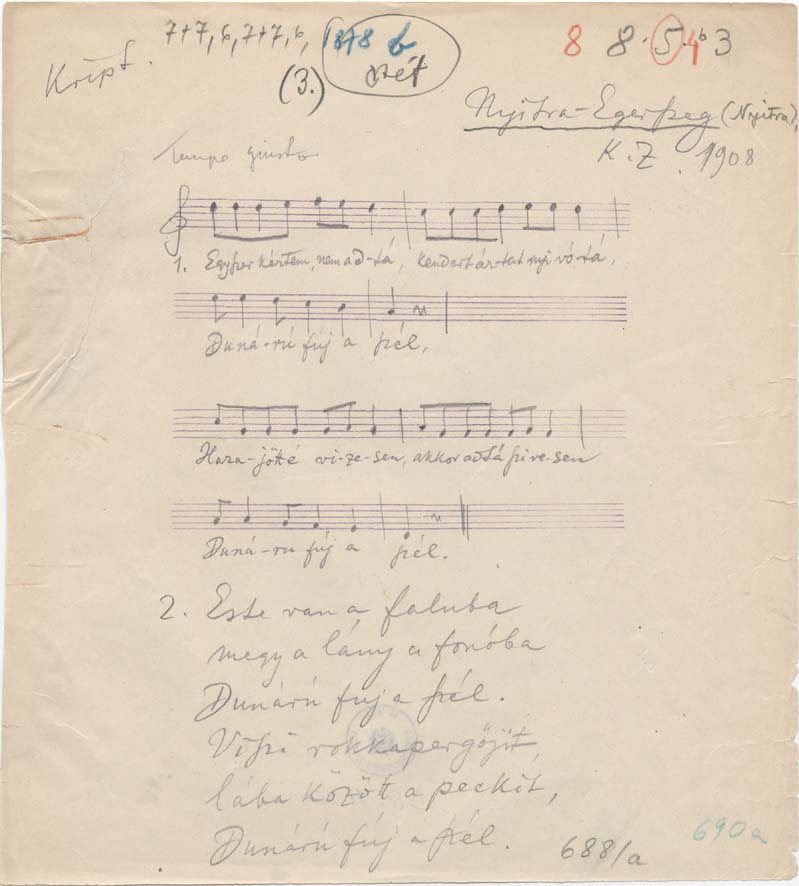 7+7, 6, 7+7, 6, 1878 b
Kript.
(3.)
8 8. 5 4 b3
Nyitra-Egerszeg (Nyitra),
K. Z. 1908
Tempo giusto
1. Egyszer kértem, nem ad-tá, kendert áz-tat nyi vó-tá,
Duná-rú fúj a szél,
Haza-jötté vi-ze-sen, akkor adtá szíve-sen
Duná-ru fúj a szél.
2. Este van a faluba
megy a lány a fonóba
Dunárú fuj a szél.
Viszi rokkapergőjit,
lába között a peckit,
Dunárú fúj a szél.
688/a
690a